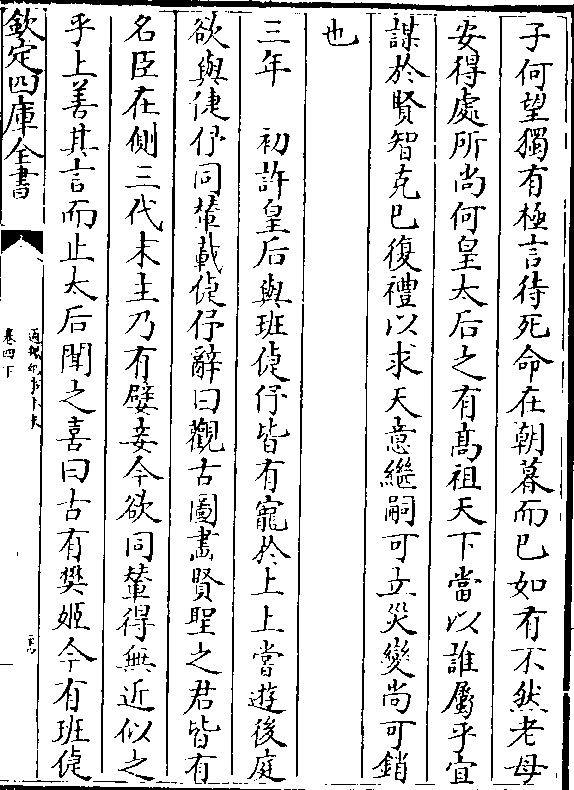 子何望獨有極言待死命在朝暮而已如有不然老母
安得處所尚何皇太后之有髙祖天下當以誰屬乎宜
謀於賢智克已復禮以求天意繼嗣可立災變尚可銷
也
三年　初許皇后與班倢伃皆有寵於上上嘗遊後庭
欲與倢伃同輦載倢伃辭曰觀古圖畫賢聖之君皆有
名臣在側三代末主乃有嬖妾今欲同輦得無近似之
乎上善其言而止太后聞之喜曰古有樊姬今有班倢
欽定四庫全書
通鑑紀事本末
卷四下